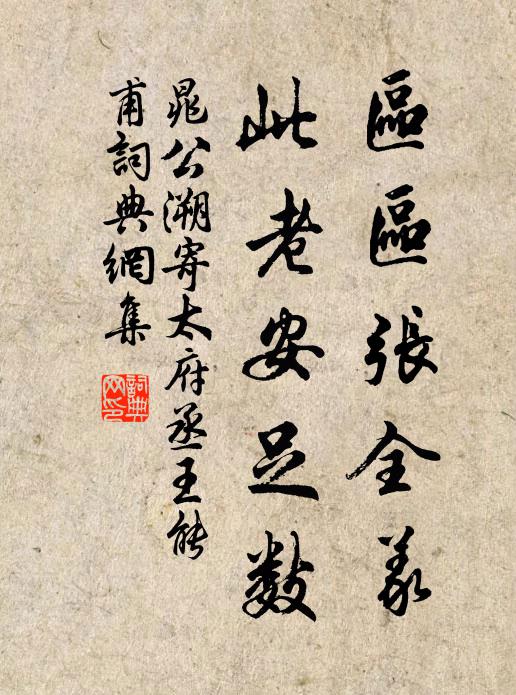 區區張全義
此老安足数
晁公溯寄太府丞王能
甫詞典網集
詞典
网印